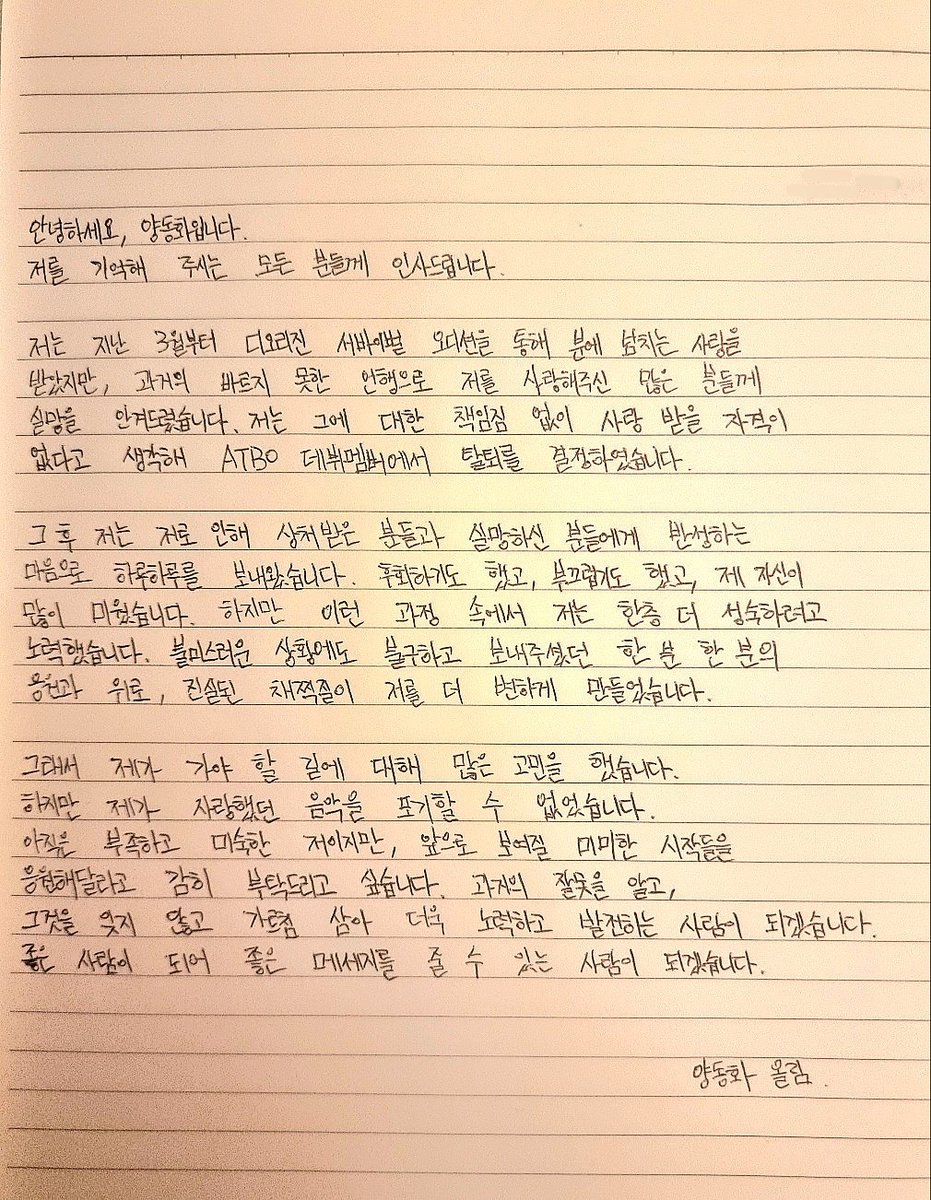 안녕하세요, 양동화입니다.
저를 기억해 주시는 모든 분들께 인사드립니다.
저는 지난 3월부터 디오리진 서바이벌 오디션을 통해 분에 넘치는 사랑을
받았지만, 과거의 바르지 못한 언행으로 저를 사랑해주신 많은 분들께
실망을 안겨드렸습니다. 저는 그에 대한 책임짐 없이 사랑 받을 자격이
없다고 생각해 ATBO 데뷔멤버에서 탈퇴를 결정하였습니다.
그 후 저는 저로 인해 상처받은 분들과 실망하신 분들에게 반성하는
마음으로 하루하루를 보내왔습니다. 후회하기도 했고, 부끄럽기도 했고, 제 자신이
많이 미웠습니다. 하지만 이런 과정 속에서 저는 한층 더 성숙하려고
노력했습니다. 불미스러운 상황에도 불구하고 보내주셨던 한 분 한 분의
응원과 위로, 진실된 채찍질이 저를 더 변하게 만들었습니다.
그래서 제가 가야 할 길에 대해 많은 고민을 했습니다.
하지만 제가 사랑했던 음악을 포기할 수 없었습니다.
아직은 부족하고 미숙한 저이지만, 앞으로 보여질 미미한 시작들을
응원해달라고 감히 부탁드리고 싶습니다. 과거의 잘못을 알고,
그것을 잊지 않고 가르침 삼아 더욱 노력하고 발전하는 사람이 되겠습니다.
좋은 사람이 되어 좋은 메세지를 줄 수 있는 사람이 되겠습니다.
양동화 올림.